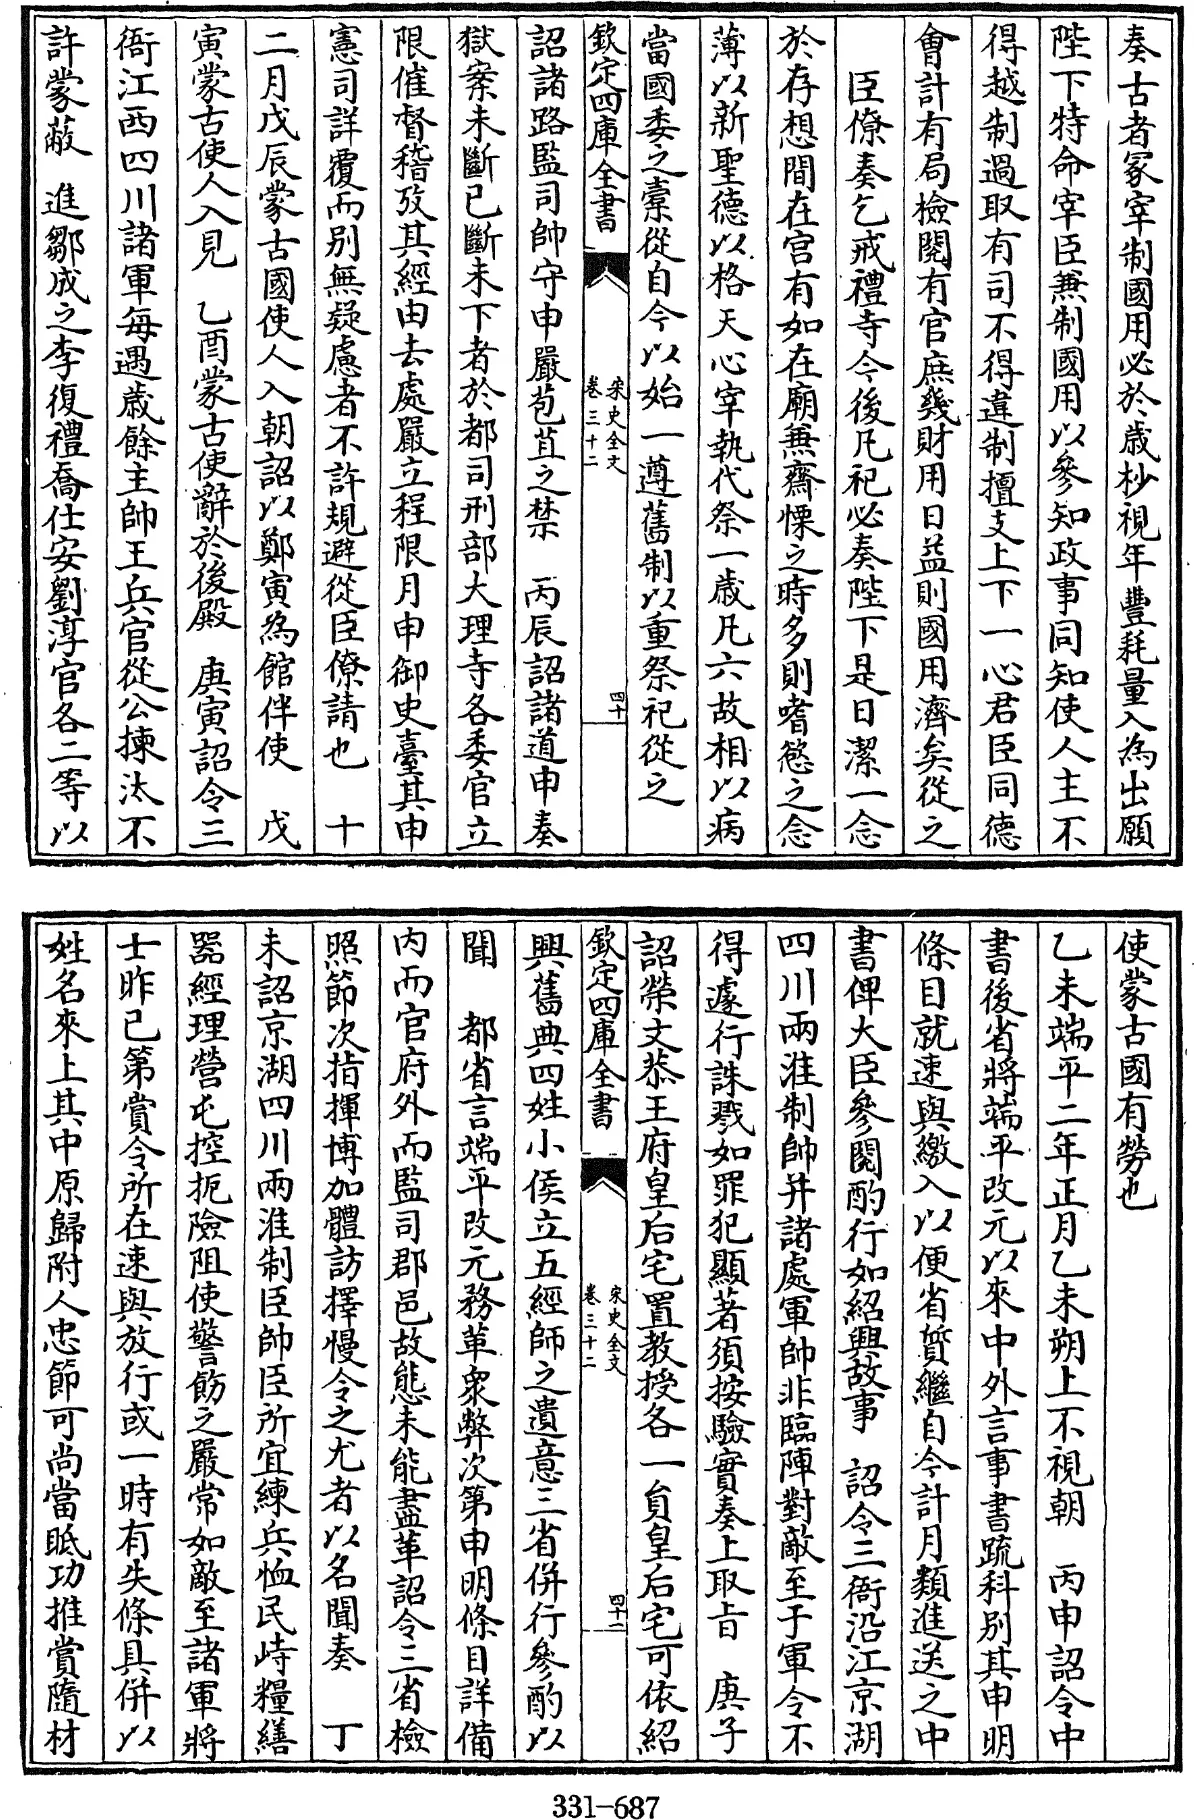 奏古者冢宰制國用必於歳杪視年豐耗量入為出願
陛下特命宰臣兼制國用以參知政事同知使人主不
得越制過取有司不得違制擅支上下一心君臣同德
會計有局檢閱有官庶幾財用日益則國用濟矣從之
臣僚奏乞戒禮寺今後凡祀必奏陛下是日潔一念
於存想間在宫有如在廟無齋慄之時多則嗜慾之念
薄以新聖德以格天心宰執代祭一歳凡六故相以病
當國委之橐從自今以始一遵舊制以重祭祀從之
欽定四庫全書 宋史全文卷三十二 四十
詔諸路監司帥守申嚴苞苴之禁 丙辰詔諸道申奏
獄案未斷已斷未下者於都司刑部大理寺各委官立
限催督稽攷其經由去處嚴立程限月申御史臺其申
憲司詳覆而别無疑慮者不許規避從臣僚請也 十
二月戊辰蒙古國使人入朝詔以鄭寅為館伴使 戊
寅蒙古使人入見 乙酉蒙古使辭於後殿 庚寅詔令三
衙江西四川諸軍每遇歳餘主帥王兵官從公揀汰不
許蒙蔽 進鄒成之李復禮喬仕安劉淳官各二等以
使蒙古國有勞也
乙未端平二年正月乙未朔上不視朝 丙申詔令中
書後省將端平改元以來中外言事書疏科别其申明
條目就速與繳入以便省質繼自今計月類進送之中
書俾大臣參閱酌行如紹興故事 詔令三衙沿江京湖
四川兩淮制帥并諸處軍帥非臨陣對敵至于軍令不
得遽行誅戮如罪犯顯著須按驗實奏上取㫖 庚子
詔榮文恭王府皇后宅置教授各一員皇后宅可依紹
欽定四庫全書 宋史全文卷三十二 四十一
興舊典四姓小侯立五經師之遺意三省併行參酌以
聞 都省言端平改元務革衆弊次第申明條目詳備
内而官府外而監司郡邑故態未能盡革詔令三省檢
照節次指揮博加體訪擇慢令之尤者以名聞奏 丁
未詔京湖四川兩淮制臣帥臣所宜練兵恤民峙糧繕
器經理營屯控扼險阻使警飭之嚴常如敵至諸軍將
士昨已第賞令所在速與放行或一時有失條具併以
姓名來上其中原歸附人忠節可尚當眂功推賞隨材
331-687